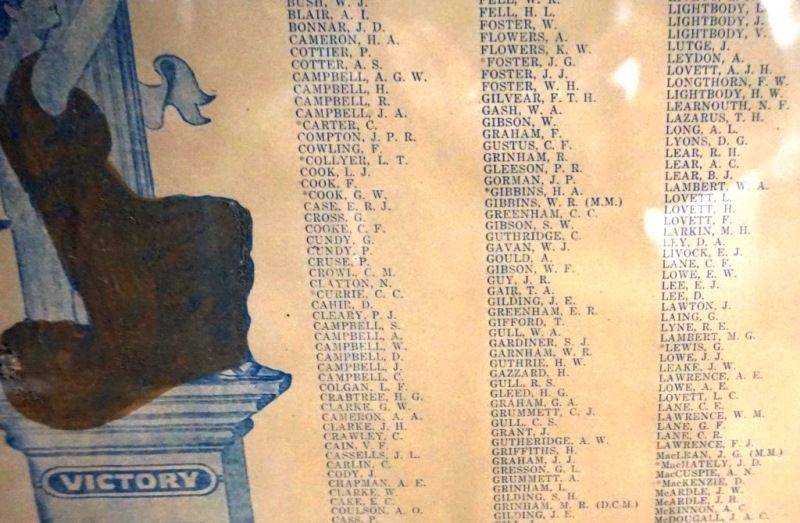 BUSH, W. J.
BLAIR, A. I.
BONNAR, J. D.
CAMERON, H. A.
COTTIER, P.
COTTER, A. S.
CAMPBELL, A. G. W.
CAMPBELL, H.
CAMPBELL, R.
CAMPBELL, J. A.
*CARTER, C.
COMPTON, J. P. R.
COWLING, F.
*COLLYER, L. T.
COOK, L. J.
COOK, F.
*COOK, G. W.
CASE, E. R. J.
CROSS, G.
COOKE, C. F.
CUNDY, G.
CUNDY, P.
CRUSE, P.
CROWL, C. M.
CLAYTON, N.
*CURRIE, C. C.
CAHIR, D.
CLEARY, P. J.
CAMPBELL, S.
CAMPBELL, A.
CAMPBELL, W.
CAMPBELL, D.
CAMPBELL, J.
CAMPBELL, C.
COLGAN, L. F.
CRABTREE, H. G.
CLARKE, G. W.
CAMERON, A. A.
CLARKE, J. H.
CRAWLEY, C.
CAIN, V. F.
CASSELLS, J. L.
CARLIN, C.
CODY, J.
CHAPMAN, A. E.
CLARKE, W.
CAKE, E. C.
COULSON, A. O.
CASS, P.
FELL, W. R.
FELL, H. L.
FOSTER, W.
FLOWERS, A.
FLOWERS, K. W.
*FOSTER, J. G.
FOSTER, J. J.
FOSTER, W. H.
GILVEAR, F. T. H.
GASH, W. A.
GIBSON, W.
GRAHAM, F.
GUSTUS, C. F.
GRINHAM, R.
GLEESON, P. R.
GORMAN, J. P.
*GIBBINS, H. A.
GIBBINS, W. R. (M.M.)
GREENHAM, C. C.
GIBSON, S. W.
GUTHRIDGE, C.
GAVAN, W. J.
GOULD, A.
GIBSON, W. F.
GUY, J. R.
GAIR, T. A.
GILDING, J. E.
GREENHAM, E. R.
GIFFORD, T.
GULL, W. A.
GARDINER, S. J.
GARNHAM, W. R.
GUTHRIE, H. W.
GAZZARD, H.
GULL, R. S.
GLEED, H. G.
GRAHAM, G. A.
GRUMMETT, C. J.
GULL, C. S.
GRANT, J.
GUTHERIDGE, A. W.
GRIFFITHS, H.
GRAHAM, J. J.
GRESSON, G. L.
GRUMMETT, A.
GRINHAM, L.
GILDING, S. H.
GRINHAM, M. R. (D.C.M.)
GILDING, J. E.
LIGHTBODY, L.
LIGHTBODY, J.
LIGHTBODY, V.
LUTGE, J.
LEYDON, A.
LOVETT, A. J. H.
LONGTHORN, F. W.
LIGHTBODY, H. W.
LEARNOUTH, N. F.
LAZARUS, T. H.
LONG, A. L.
LYONS, D. G.
LEAR, R. H.
LEAR, A. C.
LEAR, B. J.
LAMBERT, W. A.
LOVETT, L.
LOVETT, H.
LOVETT, F.
LARKIN, M. H.
LEY, D. A.
LIVOCK, E. J.
LANE, C. F.
LOWE, E. W.
LEE, E. J.
LEE, D.
LAWTON, J.
LAING, G.
LYNE, R. E.
LAMBERT, M. G.
*LEWIS, G.
LOWE, J. J.
LEAKE, J. W.
LAWRENCE, A. E.
LOWE, A. E.
LOVETT, L. C.
LANE, C. E.
LAWRENCE, W. M.
LANE, G. F.
LANE, C. R.
LAWRENCE, F. J.
MacLEAN, J. G. (M.M.)
*MacHATELY, J. D.
MacCUSPIE, A. N.
*MacKENZIE, D.
McARDLE, J. W.
McARDLE, J. R.
McKINNON, A. C.
McDOUGALL, J. A. C.
VICTORY